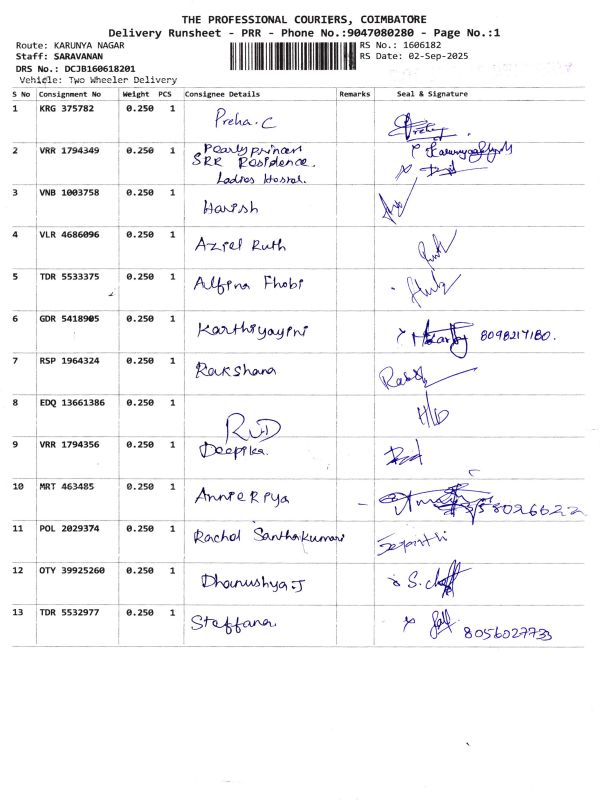 THE PROFESSIONAL COURIERS, COIMBATORE
Delivery Runsheet - PRR - Phone No.:9047080280 - Page No.:1
Route: KARUNYA NAGAR RS No.: 1606182
Staff: SARAVANAN RS Date: 02-Sep-2025
DRS No.: DCJB160618201
Vehicle: Two Wheeler Delivery
S No Consignment No Weight PCS Consignee Details Remarks Seal & Signature
1 KRG 375782 0.250 1 Preha.C
2 VRR 1794349 0.250 1 Pearlyprincen
SRR Residence.
Ladies Hostal.
3 VNB 1003758 0.250 1 Harish
4 VLR 4686096 0.250 1 Aziel Ruth
5 TDR 5533375 0.250 1 Alfina Fhobi
6 GDR 5418905 0.250 1 Karthiyayini 8098217180.
7 RSP 1964324 0.250 1 Rakshana
8 EDQ 13661386 0.250 1 H/D
9 VRR 1794356 0.250 1 Deepika.
10 MRT 463485 0.250 1 Annie Riya
11 POL 2029374 0.250 1 Rachel Santhakumari
12 OTY 39925260 0.250 1 Dhanushya.J
13 TDR 5532977 0.250 1 Steffana 8056027733